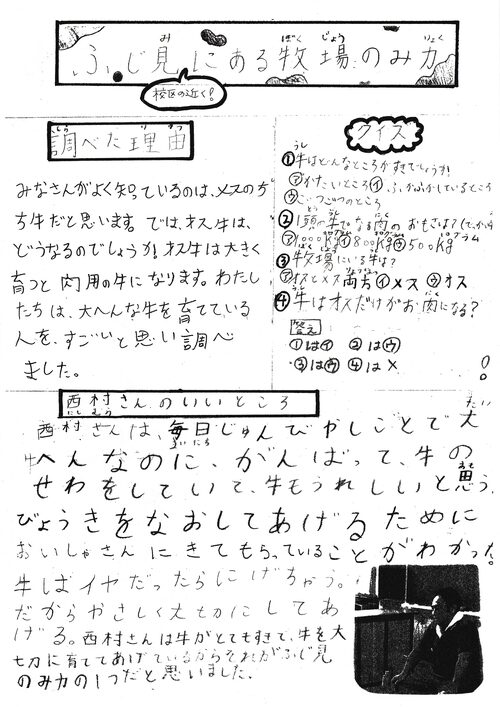 ふじ見にある牧場のみ力
校区の近く!
調べた理由
みなさんがよく知っているのは、メスのち
ち牛だと思います。では、オス牛は、
どうなるのでしょうか?オス牛は大きく
育つと肉用の牛になります。わたし
たちは、大へんな牛を育てている
人を、すごいと思い調べ
ました。
クイズ
①牛はどんなところがすきでしょうか?
㋐かたいところ㋑ふかふかしているところ
㋒ごつごつのところ
②1頭の牛でなる肉のおもさは?
㋐1000kg㋑800kg㋒500kg
③牧場にいる牛は?
㋐オスとメス両方㋑メス㋒オス
④牛はオスだけがお肉になる?
答え
①は㋑ ②は㋒
③は㋒ ④は×
西村さんのいいところ
西村さんは、毎日じゅんびやしごとで大
へんなのに、がんばって、牛の
せわをしていて、牛もうれしいと思う。
びょうきをなおしてあげるために
おいしゃさんにきてもらっていることがわかった。
牛はイヤだったらにげちゃう。
だからやさしく大切にしてあ
げる。西村さんは牛がとてもすきで、牛を大
切に育ててあげているからそれがふじ見
のみ力の1つだと思いました。